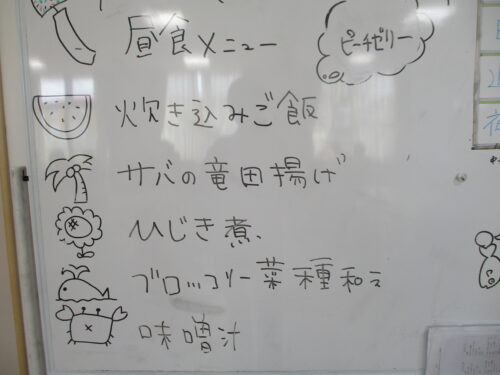 昼食メニュー
ピーチゼリー
炊き込みご飯
サバの竜田揚げ
ひじき煮
ブロッコリー菜種和え
味噌汁